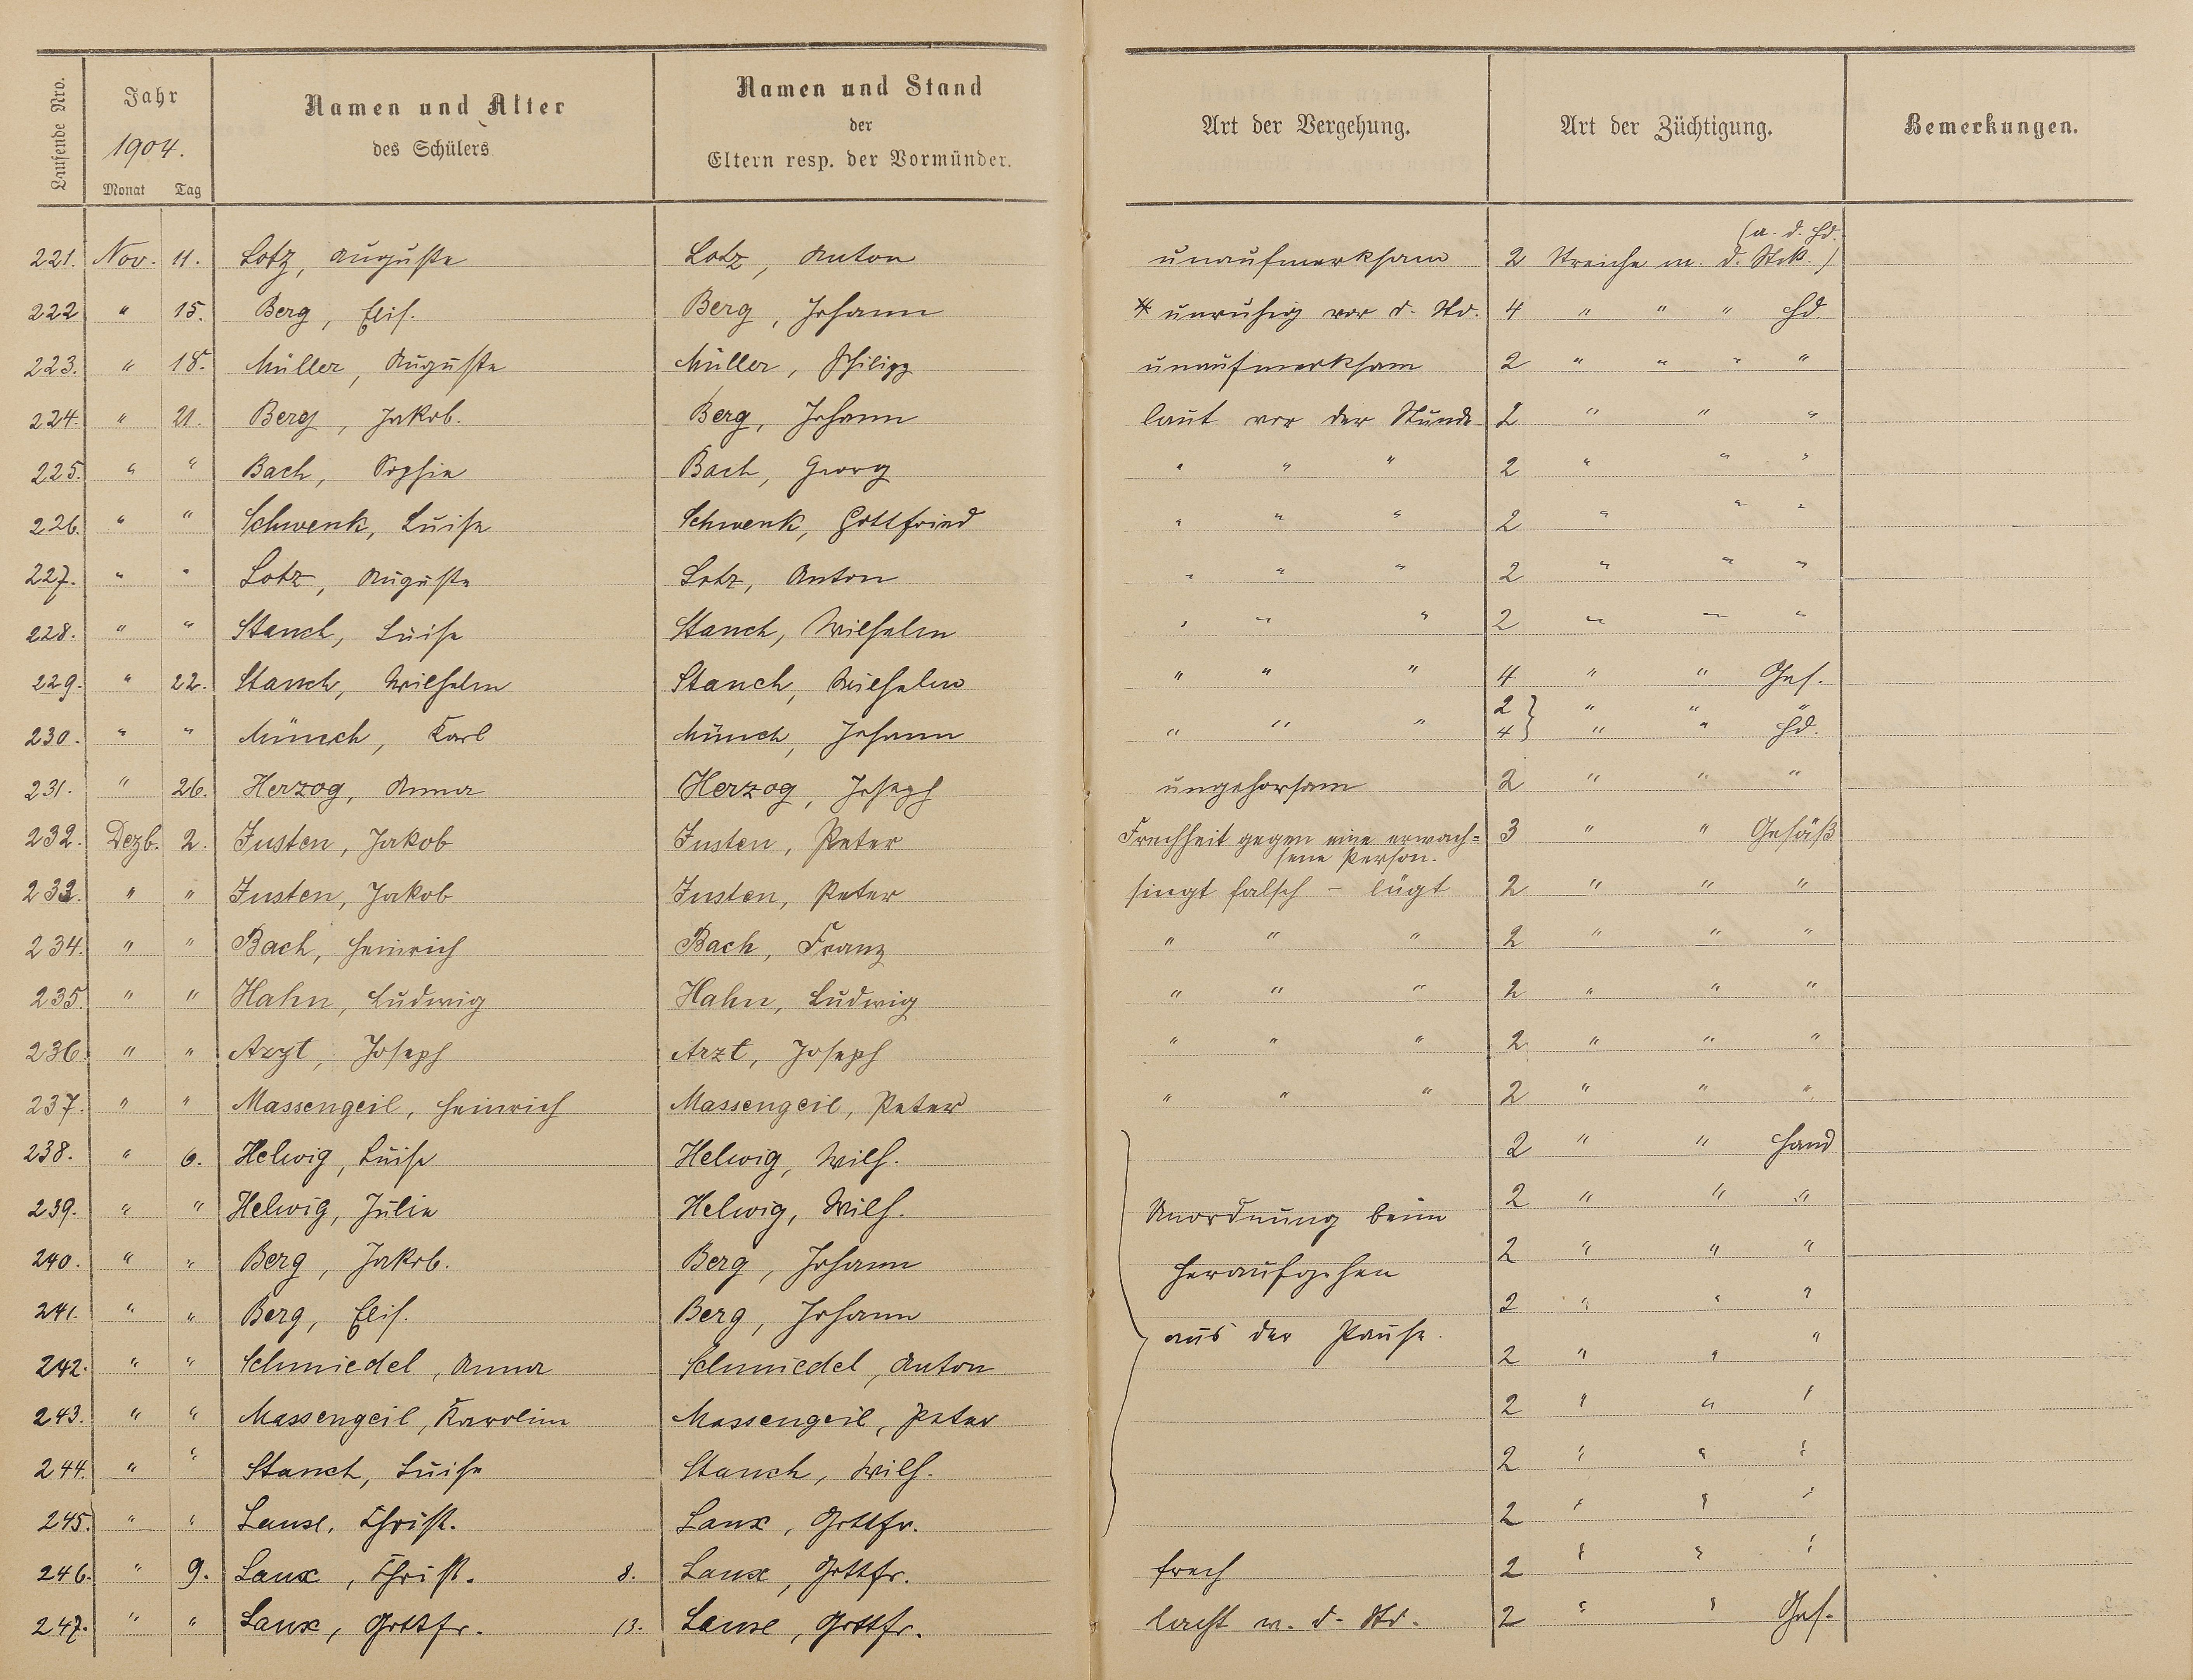 Laufende Nro.
Jahr
1904.
Monat Tag
Namen und Alter
des Schülers
Namen und Stand
der
Eltern resp. der Vormünder.
Art der Vergehung.
Art der Züchtigung.
Bemerkungen.
(a. d. Hd.
221. Nov. 11. Lotz, Auguste Lotz, Anton unaufmerksam 2 Streiche m. d. Stck.)
222 " 15. Berg, Elis. Berg, Johann unruhig vor d. Std. 4 " " " Hd.
223. " 18. Müller, Auguste Müller, Philipp unaufmerksam 2 " " " "
224. " 21. Berg, Jakob. Berg, Johann laut vor der Stunde 2 " " "
225. " " Bach, Sophie Bach, Georg " " " 2 " " "
226. " " Schwenk, Luise Schwenk, Gottfried " " " 2 " " "
227. " " Lotz, Auguste Lotz, Anton " " " 2 " " "
228. " " Stanch, Luise Stanch, Wilhelm " " " 2 " " "
229. " 22. Stanch, Wilhelm Stanch, Wilhelm " " " 4 " " Ges.
2 } " " "
230. " " Münch, Karl Münch, Johann " " " 4 } " " Hd.
231. " 26. Herzog, Anna Herzog, Joseph ungehorsam 2 " " "
232. Dezb. 2. Justen, Jakob Justen, Peter Frechheit gegen eine erwach= 3 " " Gesäß
sene Person.
233. " " Justen, Jakob Justen, Peter singt falsch – lügt 2 " " "
234. " " Bach, Heinrich Bach, Franz " " " 2 " " "
235. " " Hahn, Ludwig Hahn, Ludwig " " " 2 " " "
236. " " Arzt, Joseph Arzt, Joseph " " " 2 " " "
237. " " Massengeil, Heinrich Massengeil, Peter " " " 2 " " "
238. " 6. Helwig, Luise Helwig, Wilh. 2 " " Hand
239. " " Helwig, Julie Helwig, Wilh. Unordnung beim 2 " " "
240. " " Berg, Jakob. Berg, Johann Heraufgehen 2 " " "
241. " " Berg, Elis. Berg, Johann aus der Pause. 2 " " "
242. " " Schmiedel, Anna Schmiedel, Anton 2 " " "
243. " " Massengeil, Karoline Massengeil, Peter 2 " " "
244. " " Stanch, Luise Stanch, Wilh. 2 " " "
245. " " Laux, Christ. Laux, Gottfr. 2 " " "
246. " 9. Laux, Christ. 8. Laux, Gottfr. frech 2 " " "
247. " " Laux, Gottfr. 13. Laux, Gottfr. lacht w. d. Std. 2 " " Ges.